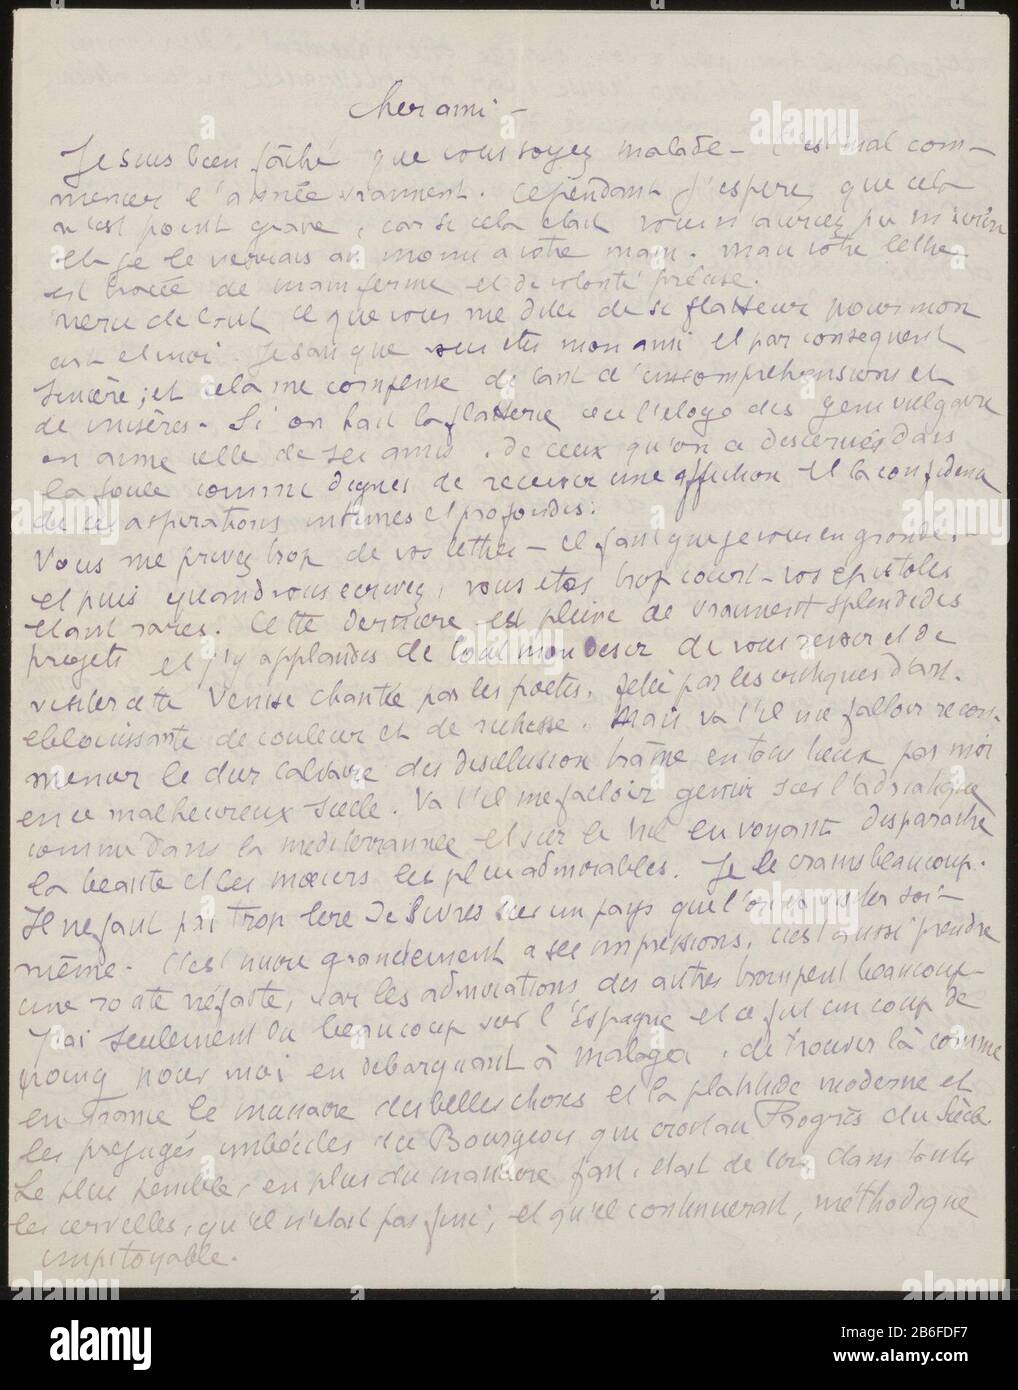 Cher ami –
Je suis bien fâché que vous soyez malade – C'est mal com-
mencer l'année vraiment. Cependant j'espère que cela
n'est point grave, car si cela etait vous n'auriez pu m'ecrire
et je le verrais au moins a votre main. Mais votre lettre
est tracée de main ferme et de volonté précise.
Merci de tout ce que vous me dites de si flatteur pour mon
art et moi. Je sais que vous etes mon ami et par consequent
sincère; et cela me compense de tant d'incompréhensions et
de misères. Si on hait la flatterie ou l'eloge des gens vulgaire
on aime celle de ses amis, de ceux qu'on a discernés dans
la foule comme dignes de recevoir une affection et la confidence
de ces aspirations intimes et profondes.
Vous me privez trop de vos lettres – il faut que je vous en gronde. –
et puis quand vous ecrivez, vous etes trop court – vos epistoles
etant rares. Cette derniere est pleine de vraiment splendides
projets et j'y applaudis de tout mon desir de vous revoir et de
visiter cette Venise chantée par les poetes, fetée par les critiques d'art.
eblouissante de couleur et de richesse. Mais va t'il me falloir recom-
mencer le dur calvaire des desillusions traîné en tous lieux par moi
en ce malheureux siecle. Va t'il me falloir gemir sur l'adriatique
comme dans la mediterrannée et sur le Nil en voyant disparaitre
la beaute et les mœurs les plus admirables. Je le crains beaucoup.
Il ne faut pas trop lire de livres sur un pays que l'on va visiter soi-
même. C'est nuire grandement a ses impressions, c'est aussi prendre
une route néfaste, car les admirations des autres trompent beaucoup –
J'ai seulement lu beaucoup sur l'Espagne et ce fut un coup de
poing pour moi en debarquant à Malaga, de trouver là comme
en France le massacre des belles choses et la platitude moderne et
les préjugés imbéciles du Bourgeois qui croit au Progrès du Siècle.
Le plus penible, en plus du massacre fait, etait de lire dans toutes
les cervelles, qu'il n'etait pas fini, et qu'il continuerait, méthodique
impitoyable.
alamy
Image ID: 2B6FDF7
www.alamy.com